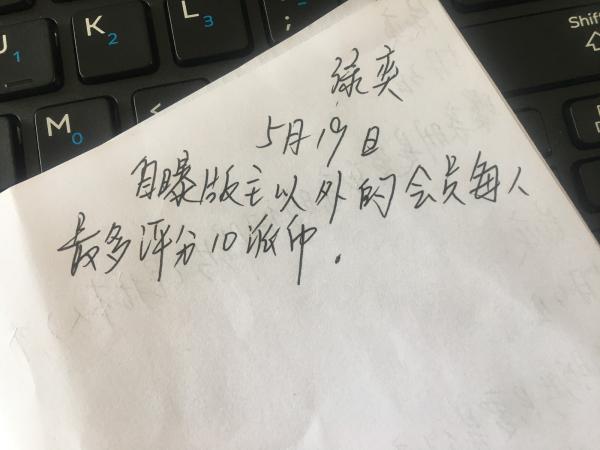 K
2
L
3
;
Shift
J
1
M
0
<
绿奕
5月19日
自曝版主以外的会员每人
最多评分10派币.